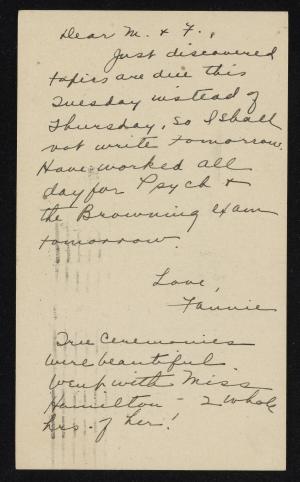 Dear M. & F.,
Just discovered
topics are due this
Tuesday instead of
Thursday, so I shall
not write tomorrow.
Have worked all
day for Psych &
the Browning exam
tomorrow.
Love,
Fannie
Tree Ceremonies
were beautiful.
Went with Miss
Hamilton - 2 whole
hrs. of her!